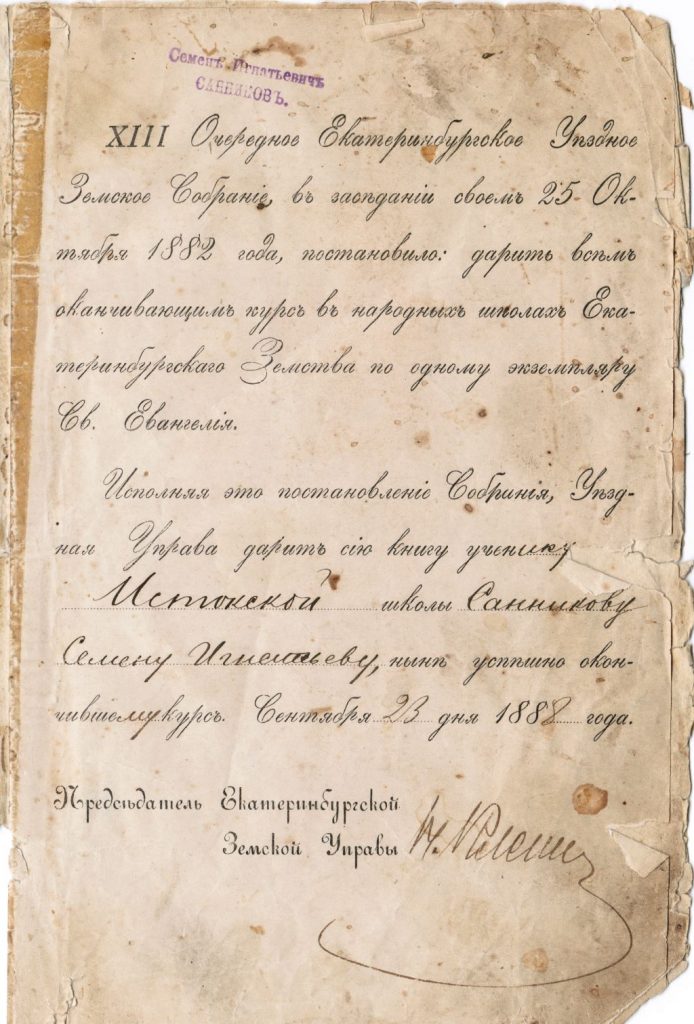 Семенъ Игнатьевичъ
САННИКОВЪ.
XIII Очередное Екатеринбургское Уѣздное
Земское Собраніе, въ засѣданіи своемъ 25 Ок-
тября 1882 года, постановило: дарить всѣмъ
оканчивающимъ курсъ въ народныхъ школахъ Ека-
теринбургскаго Земства по одному экземпляру
Св. Евангелія.
Исполняя это постановленіе Собринія, Уѣзд-
ная Управа даритъ сію книгу ученику
Истокской школы Санникову
Семену Игнатьеву, нынѣ успѣшно окон-
чившему курсъ. Сентября 23 дня 1888 года.
Предсѣдатель Екатеринбургской
Земской Управы